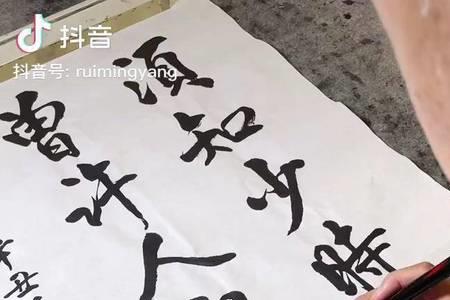 抖音
抖音号: ruimingyang
须知少時
曾许人
辛丑